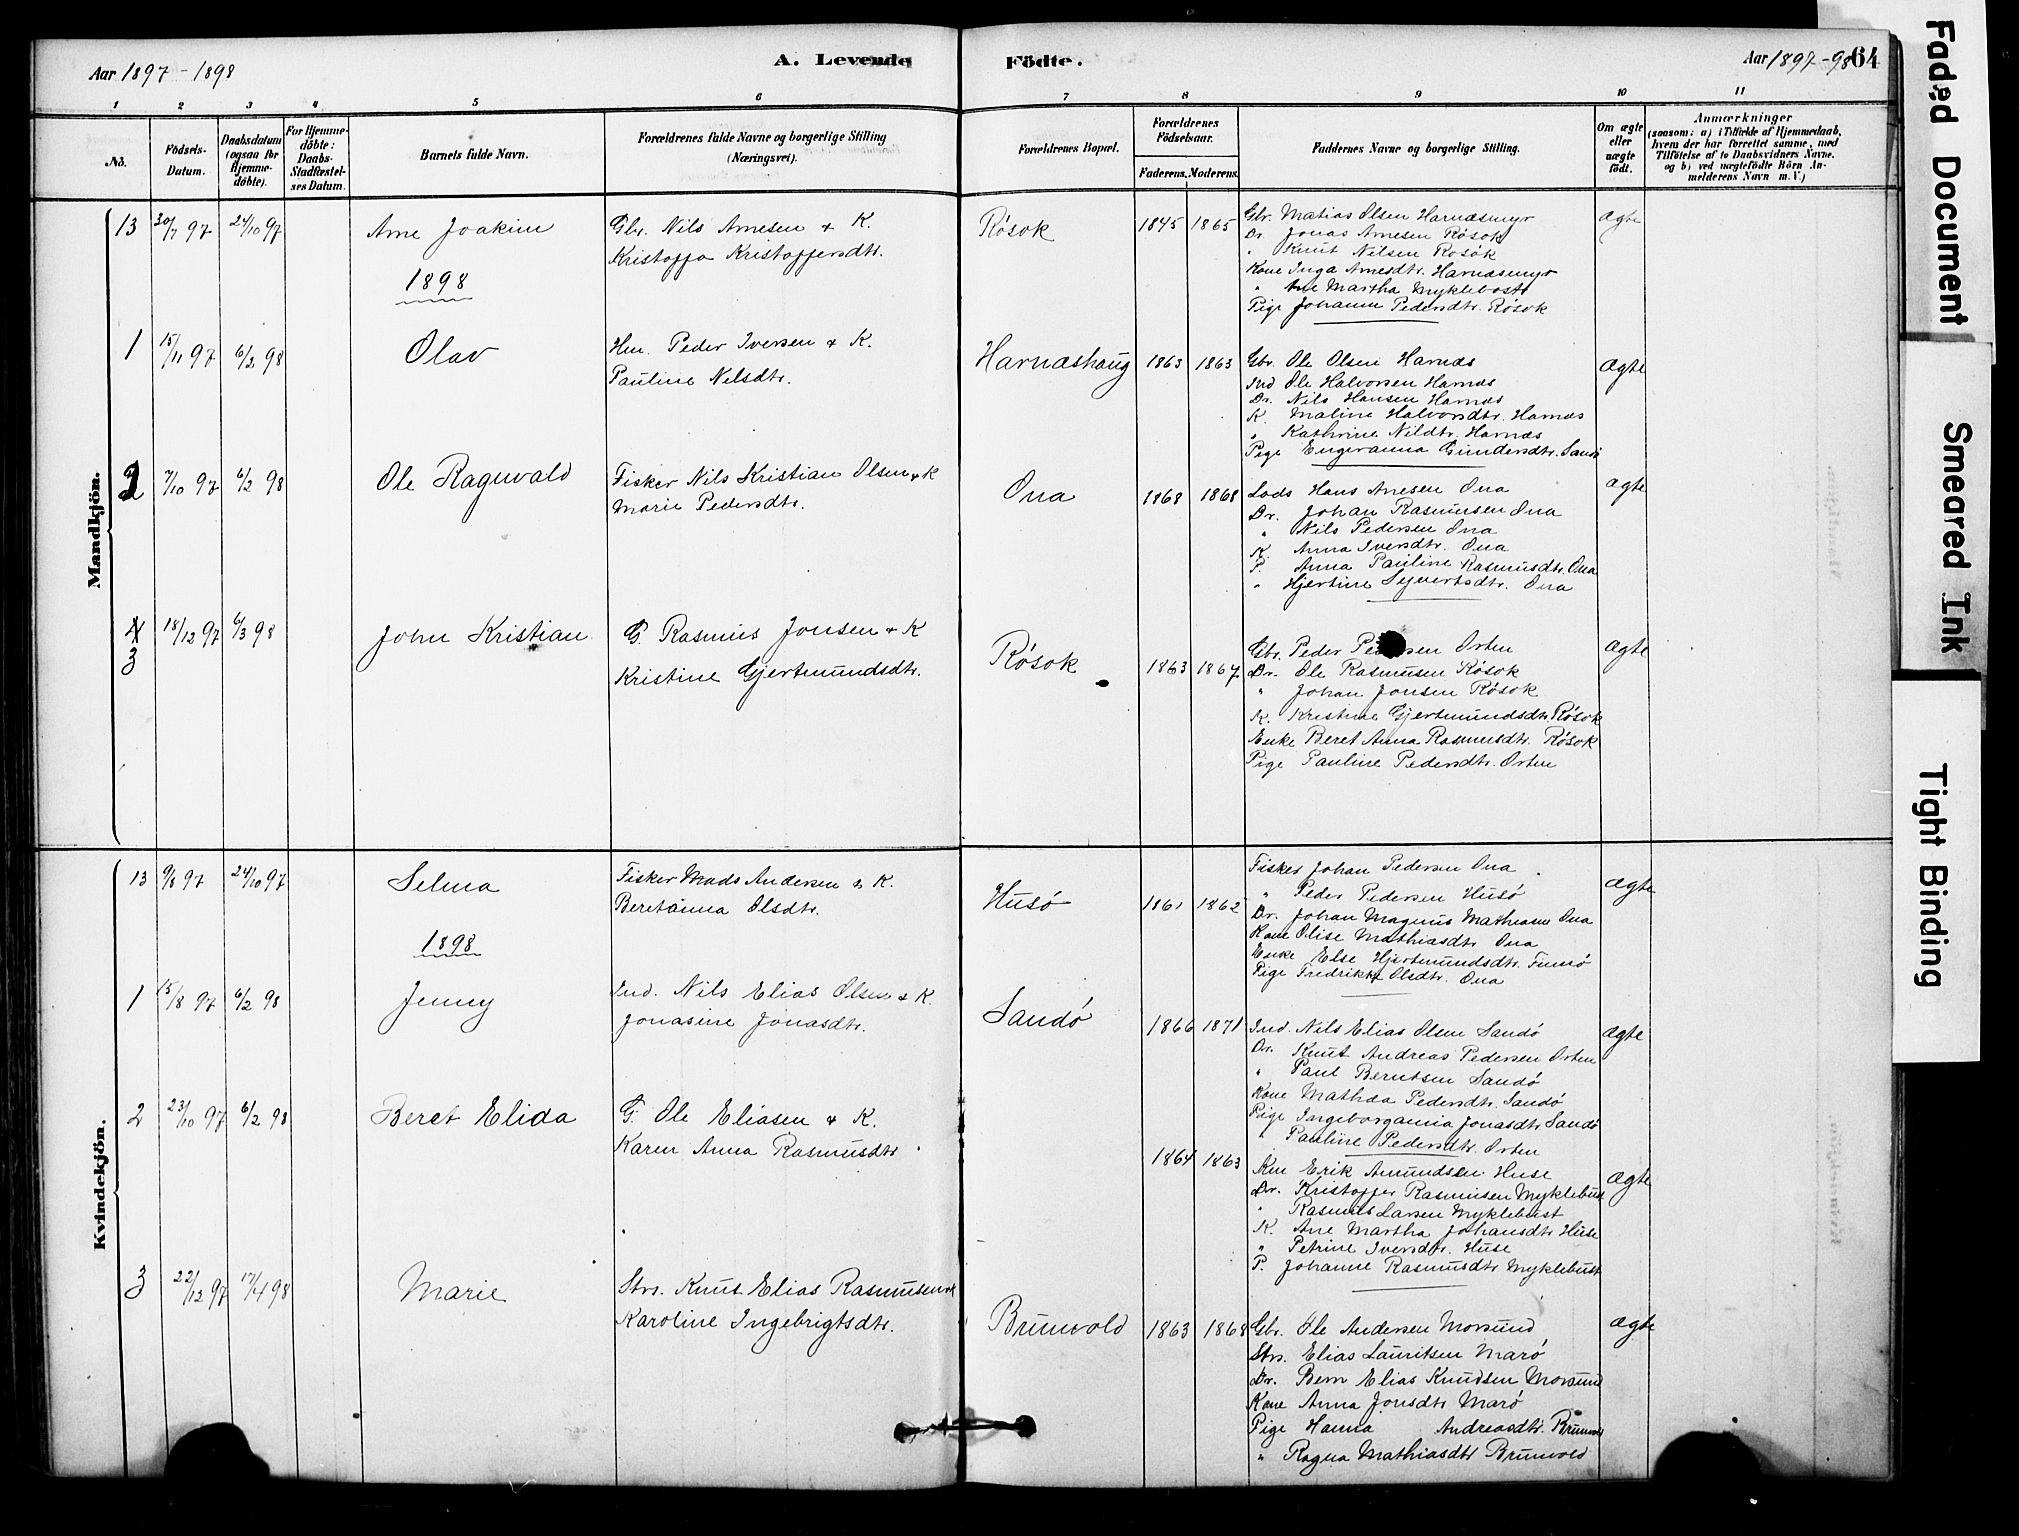 Aar 1897-1898
A. Levende Födte.
Aar 1897-98
64
1 2 3 4 5 6 7 8 9 10 11
No.
Födsels-Datum.
Daabsdatum (ogsaa for Hjemme-döbte).
For Hjemme-döbte: Daabs-Stadfæstel-ses Datum.
Barnets fulde Navn.
Forældrenes fulde Navne og borgerlige Stilling (Næringsvei).
Forældrenes Bopæl.
Forældrenes Födselsaar.
Faderens. Moderens.
Faddernes Navne og borgerlige Stilling.
Om ægte eller uægte födt.
Anmærkninger
(saasom: a) i Tilfælde af Hjemmedaab, hvem der har forrettet samme, med Tilföielse af to Daabsvidners Navne, og b) ved uægtefödte Börn An-melderens Navn m.V.)
Mandkjön.
13 30/7 97 24/10 97 Arne Joakim
Gbr. Nils Arnesen & K.
Kristoffa Kristoffersdtr.
Rösok 1845 1865
Gbr. Matias Olsen Harnæsmyr
Dr. Jonas Arnesen Rösok
" Knut Nilsen Rosök
Kone Inga Arnesdtr. Harnæsmyr
" Ane Martha Myklebost
Pige Johanne Pedersdtr. Rösok
ægte
1898
1 15/11 97 6/2 98 Olav
Hm. Peder Iversen & K.
Pauline Nilsdtr.
Harnæshaug 1863 1863
Gbr. Ole Olsen Harnæs
Ind Ole Halvorsen Harnæs
Dr. Nils Hansen Harnæs
K. Maline Halvorsdtr. Harnæs
" Kathrine Nilsdtr. Harnæs
Pige Engeranna Gundersdtr. Sandö
ægte
2 7/10 97 6/2 98 Ole Ragnvald
Fisker Nils Kristian Olsen & K
Marie Pedersdtr.
Ona 1868 1868
Lods Hans Arnesen Ona
Dr. Johan Rasmussen Ona
" Nils Pedersen Ona
K. Anna Iversdtr. Ona
P. Anna Pauline Rasmusdtr. Ona
" Hjertine Syvertsdtr. Ona
ægte
4
3 18/12 97 6/3 98 John Kristian
G. Rasmus Jonsen & K
Kristine Gjertmundsdtr.
Rösok 1863 1867
Gbr. Peder Pedersen Orten
Dr. Ole Rasmusen Rösok
" Johan Jonsen Rösok
K. Kristine Gjertmundsdtr. Rösok
Enke Beret Anna Rasmusdtr. Rösok
Pige Pauline Pedersdtr. Orten
ægte
Kvindekjön.
13 9/8 97 24/10 97 Selma
Fisker Mads Andersen & K.
Beretanna Olsdtr.
Husö 1861 1862
Fisker Johan Pedersen Ona
" Peder Pedersen Husö
Dr. Johan Magnus Mathiasen Ona
Kone Olise Mathiasdtr Ona
Enke Else Hjertmundsdtr. Finnö
Pige Fredrikke Olsdtr. Ona
ægte
1898
1 15/8 97 6/2 98 Jenny
Ind. Nils Elias Olsen & K.
Jonasine Jonasdtr.
Sandö 1866 1871
Ind. Nils Elias Olsen Sandö
Dr. Knut Andreas Pedersen Orten
" Paul Berntsen Sandö
Kone Mathda Pedersdtr. Sandö
Pige Ingeborganna Jonasdtr. Sandö
" Pauline Pedersdtr. Orten
ægte
2 23/10 97 6/2 98 Beret Elida
G. Ole Eliasen & K.
Karen Anna Rasmusdtr.
1864 1863
Km Erik Amundsen Huse
Dr. Kristoffer Rasmusen Myklebust
" Rasmus Larsen Myklebust
K. Ane Martha Johansdtr. Huse
" Petrine Iversdtr. Huse
P. Johanne Rasmusdtr. Myklebust
ægte
3 22/12 97 17/4 98 Marie
Strs. Knut Elias Rasmusen &
Karoline Ingebrigtsdtr.
Brunvold 1863 1868
Gbr. Ole Andersen Morsund
Strs. Elias Lauritsen Marö
Dr. Bern Elias Knudsen Morsund
Kone Anna Jonsdtr Marö
Pige Hanna Andreasdtr. Brunvold
" Ragna Mathiasdtr Brunvold
ægte
Faded Document
Smeared Ink
Tight Binding